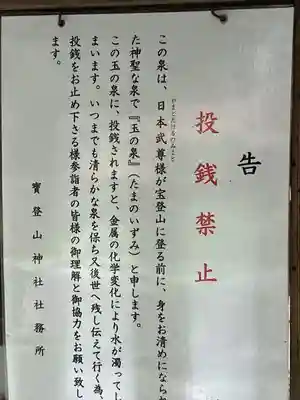 告
投銭禁止
この泉は、日本武尊様が宝登山に登る前に、身をお清めになられ
やまとたけるのみこと
た神聖な泉で『玉の泉』（たまのいずみ）と申します。
この玉の泉に、投銭されますと、金属の化学変化により水が濁ってし
まいます。いつまでも清らかな泉を保ち又後世へ残し伝えて行く為、
投銭をお止め下さる様参詣者の皆様の御理解と御協力をお願い致し
ます。
寶登山神社社務所